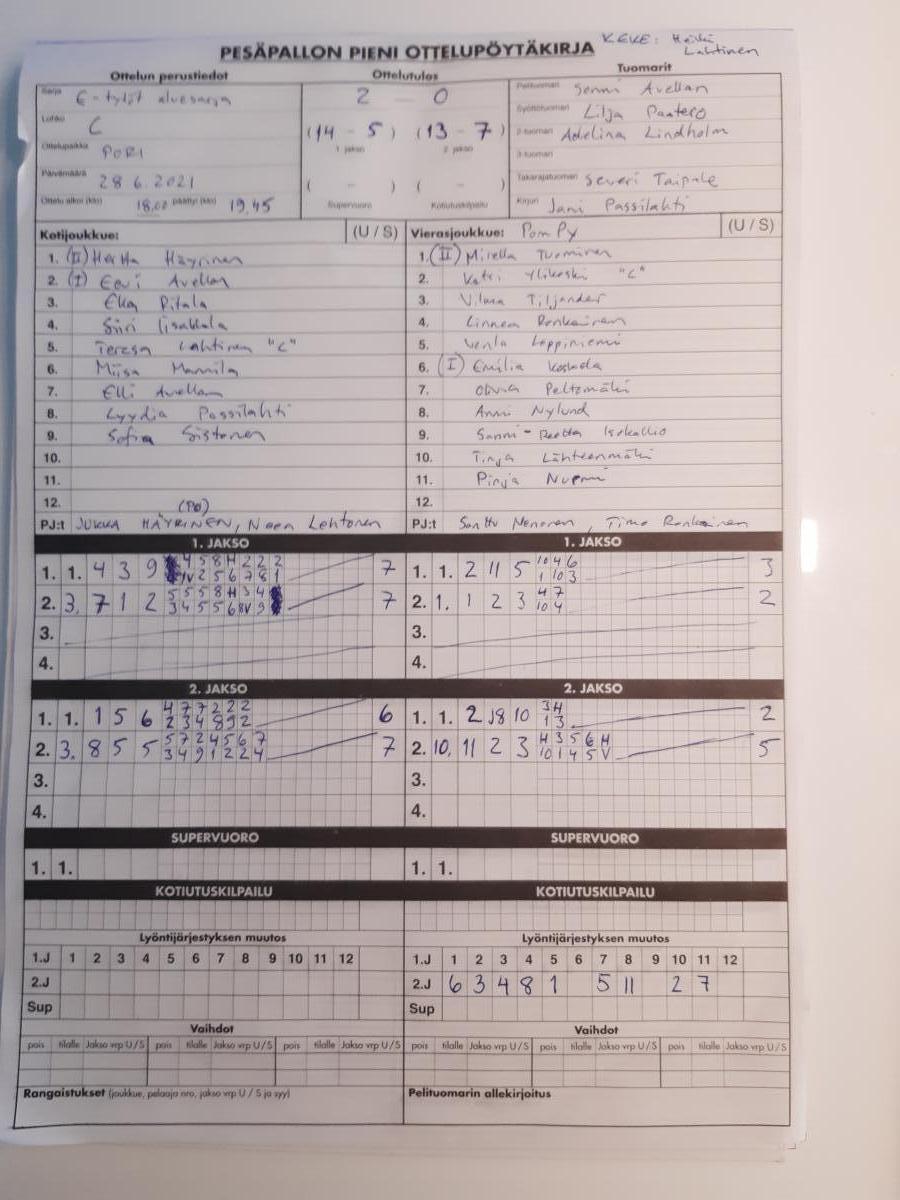 PESÄPALLON PIENI OTTELUPÖYTÄKIRJA
KEKE: Heikki Lahtinen
Ottelun perustiedot
Sarja E-tytöt aluesarja
Lohko C
Ottelupaikka PORI
Päivämäärä 28 6. 2021
Ottelu alkoi (klo) 18.00 päättyi (klo) 19.45
Ottelutulos
2 - 0
(14 - 5) (13 - 7)
1 jakso 2 jakso
( - ) ( - )
Supervuoro Kotiutuskilpailu
Tuomarit
Pelituomari Sonni Avellan
Syöttötuomari Lilja Paatero
2-tuomari Adelina Lindholm
3-tuomari
Takarajatuomari Severi Taipale
Kirjuri Jani Passilahti
Kotijoukkue: (U / S)
1. (II) Hertta Häyrinen
2. (I) Eevi Avellan
3. Pitala
4. Siiri Iisakkala
5. Teresa Lahtinen "C"
6. Miisa Mannila
7. Elli Avellan
8. Lyydia Passilahti
9. Sofia Sistonen
10.
11.
12.
(PJ)
PJ:t JUKKA HÄYRINEN, Lehtonen
Vierasjoukkue: PomPy (U / S)
1. (II) Mirella Tuominen
2. Katri Ylikoski "C"
3. Vilma Tiljander
4. Linnea Ronkainen
5. Venla Leppiniemi
6. (I) Emilia Koskela
7. Olivia Peltomäki
8. Anni Nylund
9. Sanni-Reetta Isokallio
10. Tinja Lähteenmäki
11. Pinja Nurmi
12.
PJ:t Santtu Nenonen, Timo Ronkainen
1. JAKSO
1. 1. 4 3 9
4 5 8 H 2 2 2
1V 2 5 6 7 8 1
7
2. 3. 7 1 2
5 5 5 8 H 3 4
3 4 5 5 6 8V 9
7
3.
4.
1. JAKSO
1. 1. 2 11 5
10 4 6
1 10 3
3
2. 1. 1 2 3
4 7
10 4
2
3.
4.
2. JAKSO
1. 1. 1 5 6
4 7 7 2 2 2
2 3 4 8 9 2
6
2. 3. 8 5 5
5 7 2 4 5 6 7
3 4 9 1 2 2 4
7
3.
4.
2. JAKSO
1. 1. 2 8 10
3 H
1 3
2
2. 10. 11 2 3
H 3 5 6 H
10 1 4 5 V
5
3.
4.
SUPERVUORO
1. 1.
SUPERVUORO
1. 1.
KOTIUTUSKILPAILU
KOTIUTUSKILPAILU
Lyöntijärjestyksen muutos
1.J 1 2 3 4 5 6 7 8 9 10 11 12
2.J
Sup
Lyöntijärjestyksen muutos
1.J 1 2 3 4 5 6 7 8 9 10 11 12
2.J 6 3 4 8 1 5 11 2 7
Sup
Vaihdot
pois tilalle Jakso vrp U / S pois tilalle Jakso vrp U / S pois tilalle Jakso vrp U / S
Vaihdot
pois tilalle Jakso vrp U / S pois tilalle Jakso vrp U / S pois tilalle Jakso vrp U / S
Rangaistukset (joukkue, pelaaja nro, jakso vrp U / S ja syy)
Pelituomarin allekirjoitus